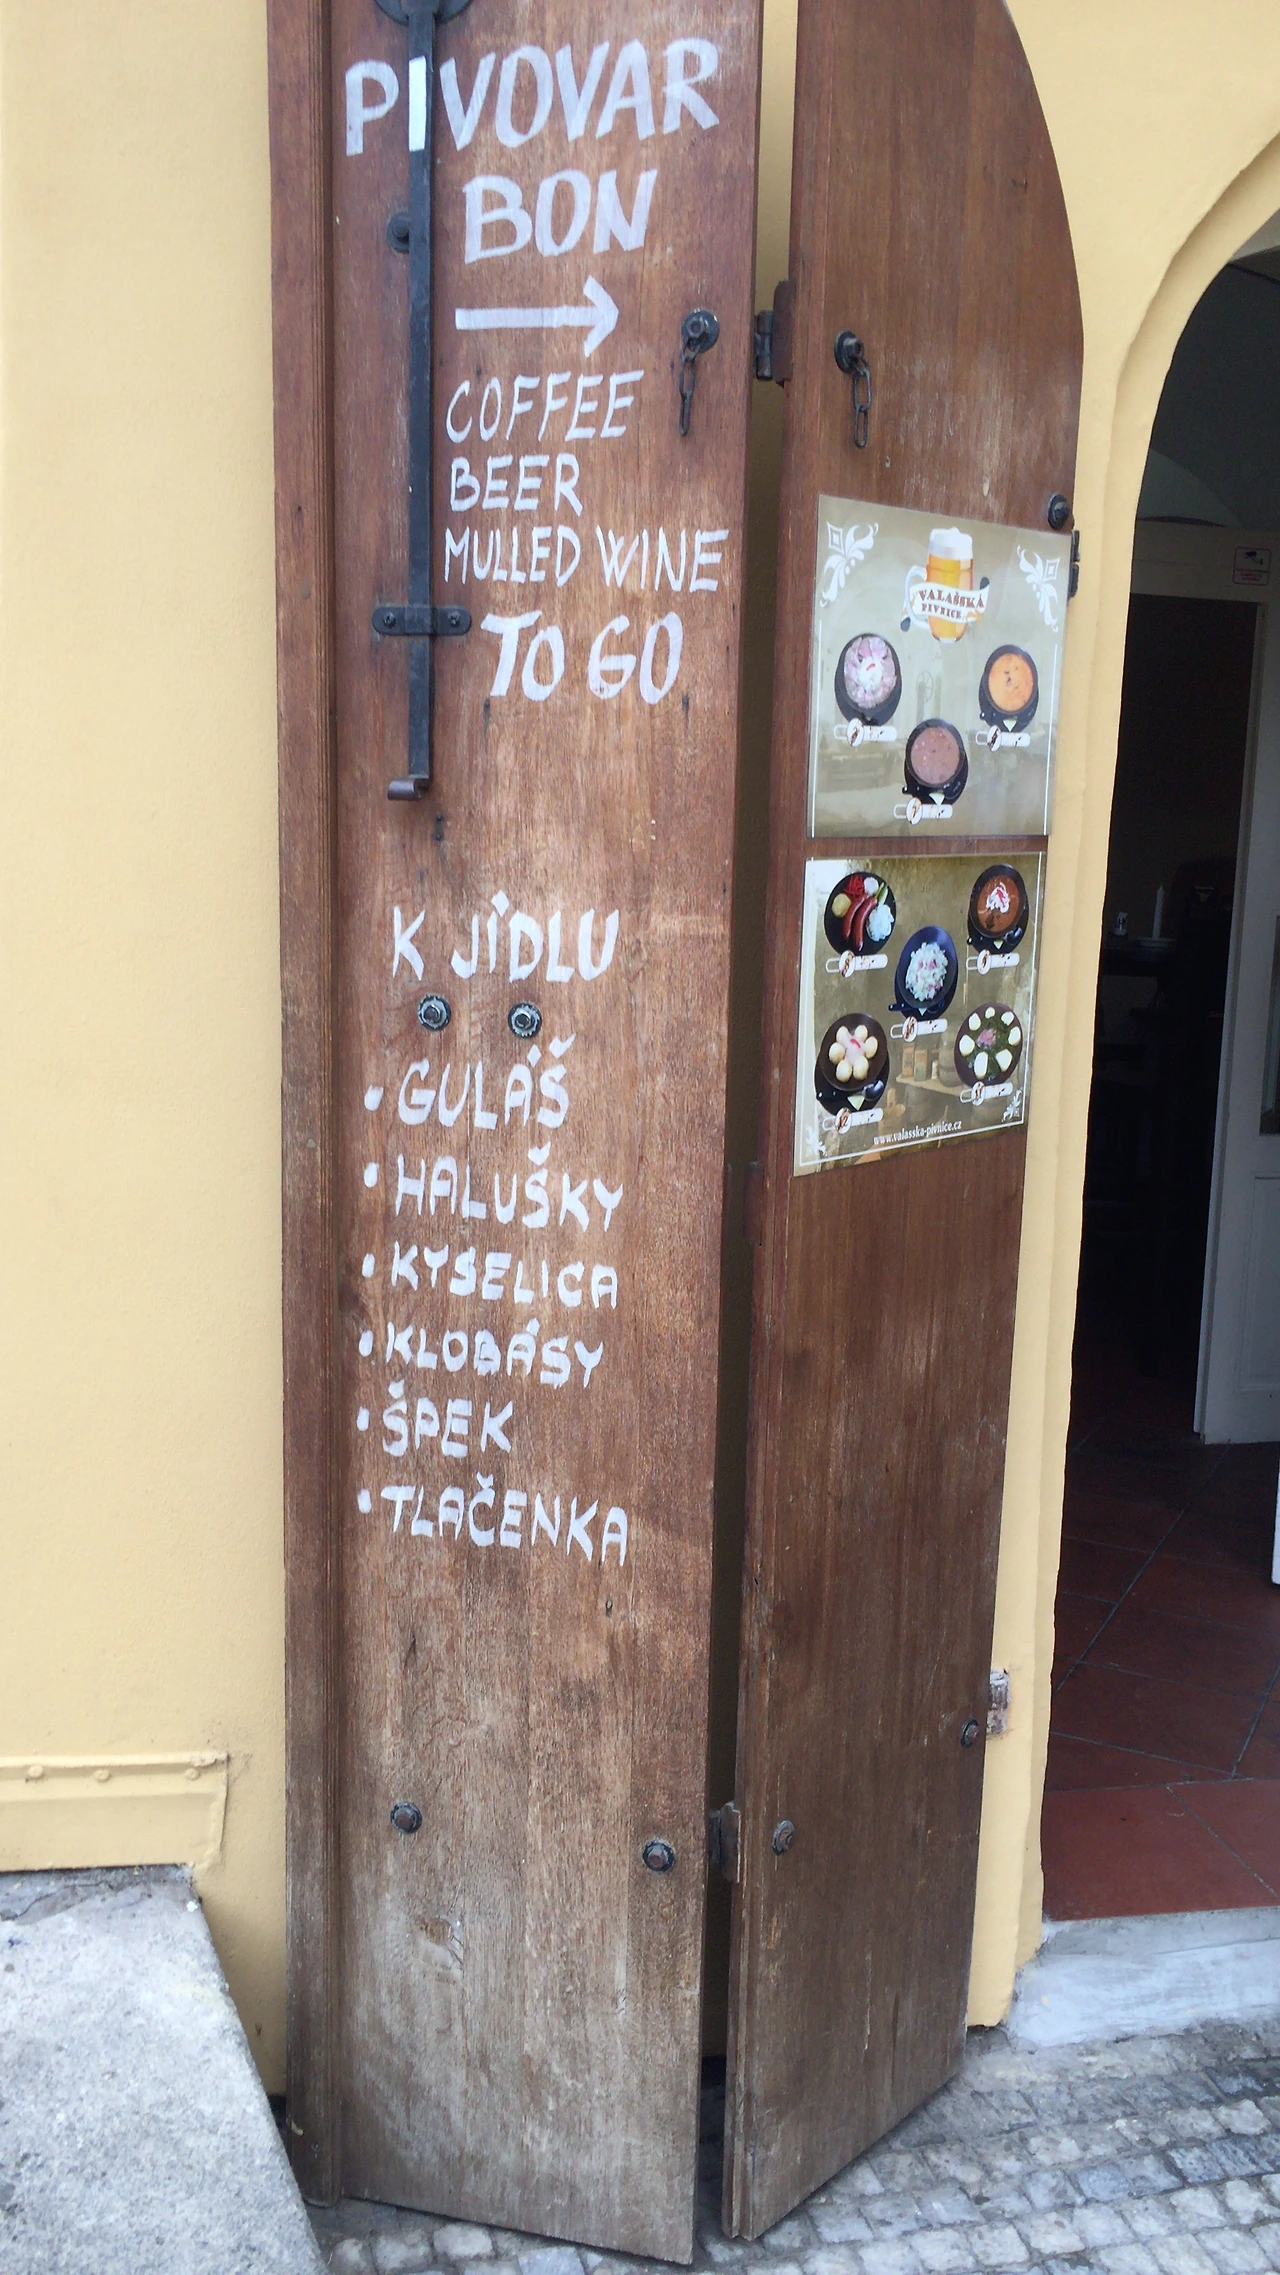 PIVOVAR
BON
COFFEE
BEER
MULLED WINE
TO GO
K JÍDLU
• GULÁŠ
• HALUŠKY
• KYSELICA
• KLOBÁSY
• ŠPEK
• TLAČENKA
VALAŠSKÁ
PIVNICE
7
12
www.valasska-pivnice.cz